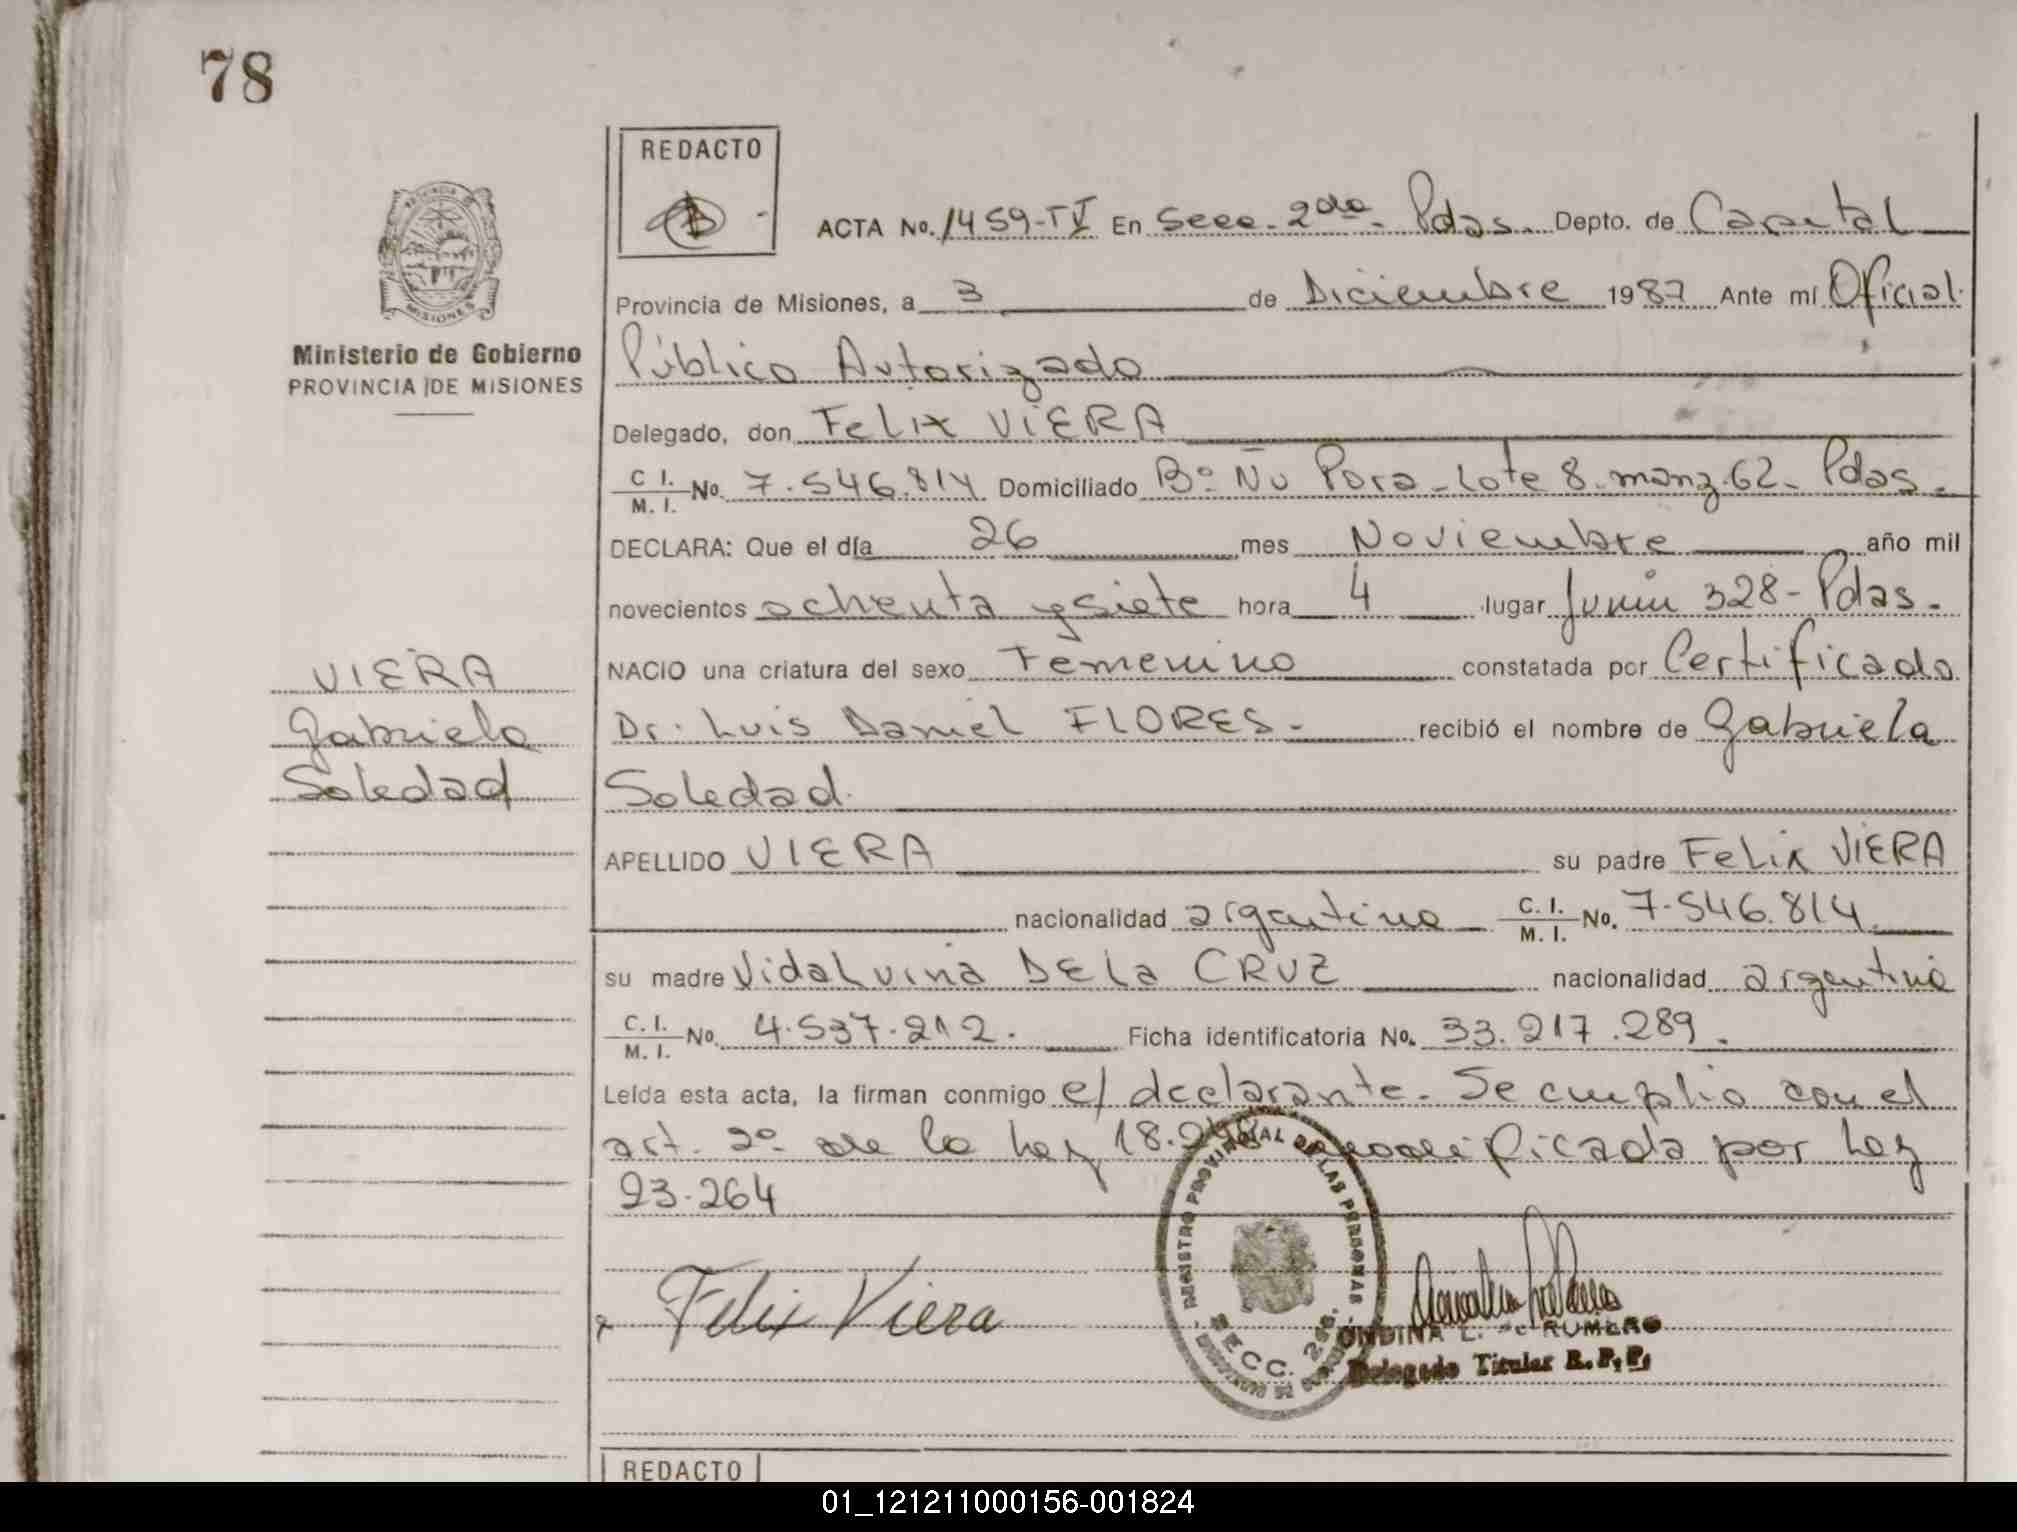 78
REDACTO
ACTA No. 1459-TV En Secc. 2da. Pdas. Depto. de Capital
Provincia de Misiones, a 3 de Diciembre 1987 Ante mí Oficial
Público Autorizado
Delegado, don Felix VIERA
C. I. M. I. No. 7.546.814 Domiciliado Bº Ñu Pora - Lote 8. manz. 62 - Pdas.
DECLARA: Que el día 26 mes Noviembre año mil
novecientos ochenta y siete hora 4 lugar Junin 328 - Pdas.
NACIO una criatura del sexo Femenino constatada por Certificado
Dr. Luis Daniel FLORES.- recibió el nombre de Gabriela
Soledad.
APELLIDO VIERA su padre Felix VIERA
nacionalidad argentina C. I. M. I. No. 7.546.814
su madre Vidalvina DE La CRUZ nacionalidad argentina
C. I. M. I. No. 4.537.212. Ficha identificatoria No. 33.217.289.
Leída esta acta, la firman conmigo el declarante. Se cumplio con el
art. 2º de la Ley 18.248 modificada por Ley
23.264
Felix Viera
REGISTRO PROVINCIAL DE LAS PERSONAS
SECC. 2da.
ONDINA L. de ROMERO
Delegado Titular R. P. P.
REDACTO
Ministerio de Gobierno
PROVINCIA DE MISIONES
VIERA
Gabriela
Soledad
01_121211000156-001824